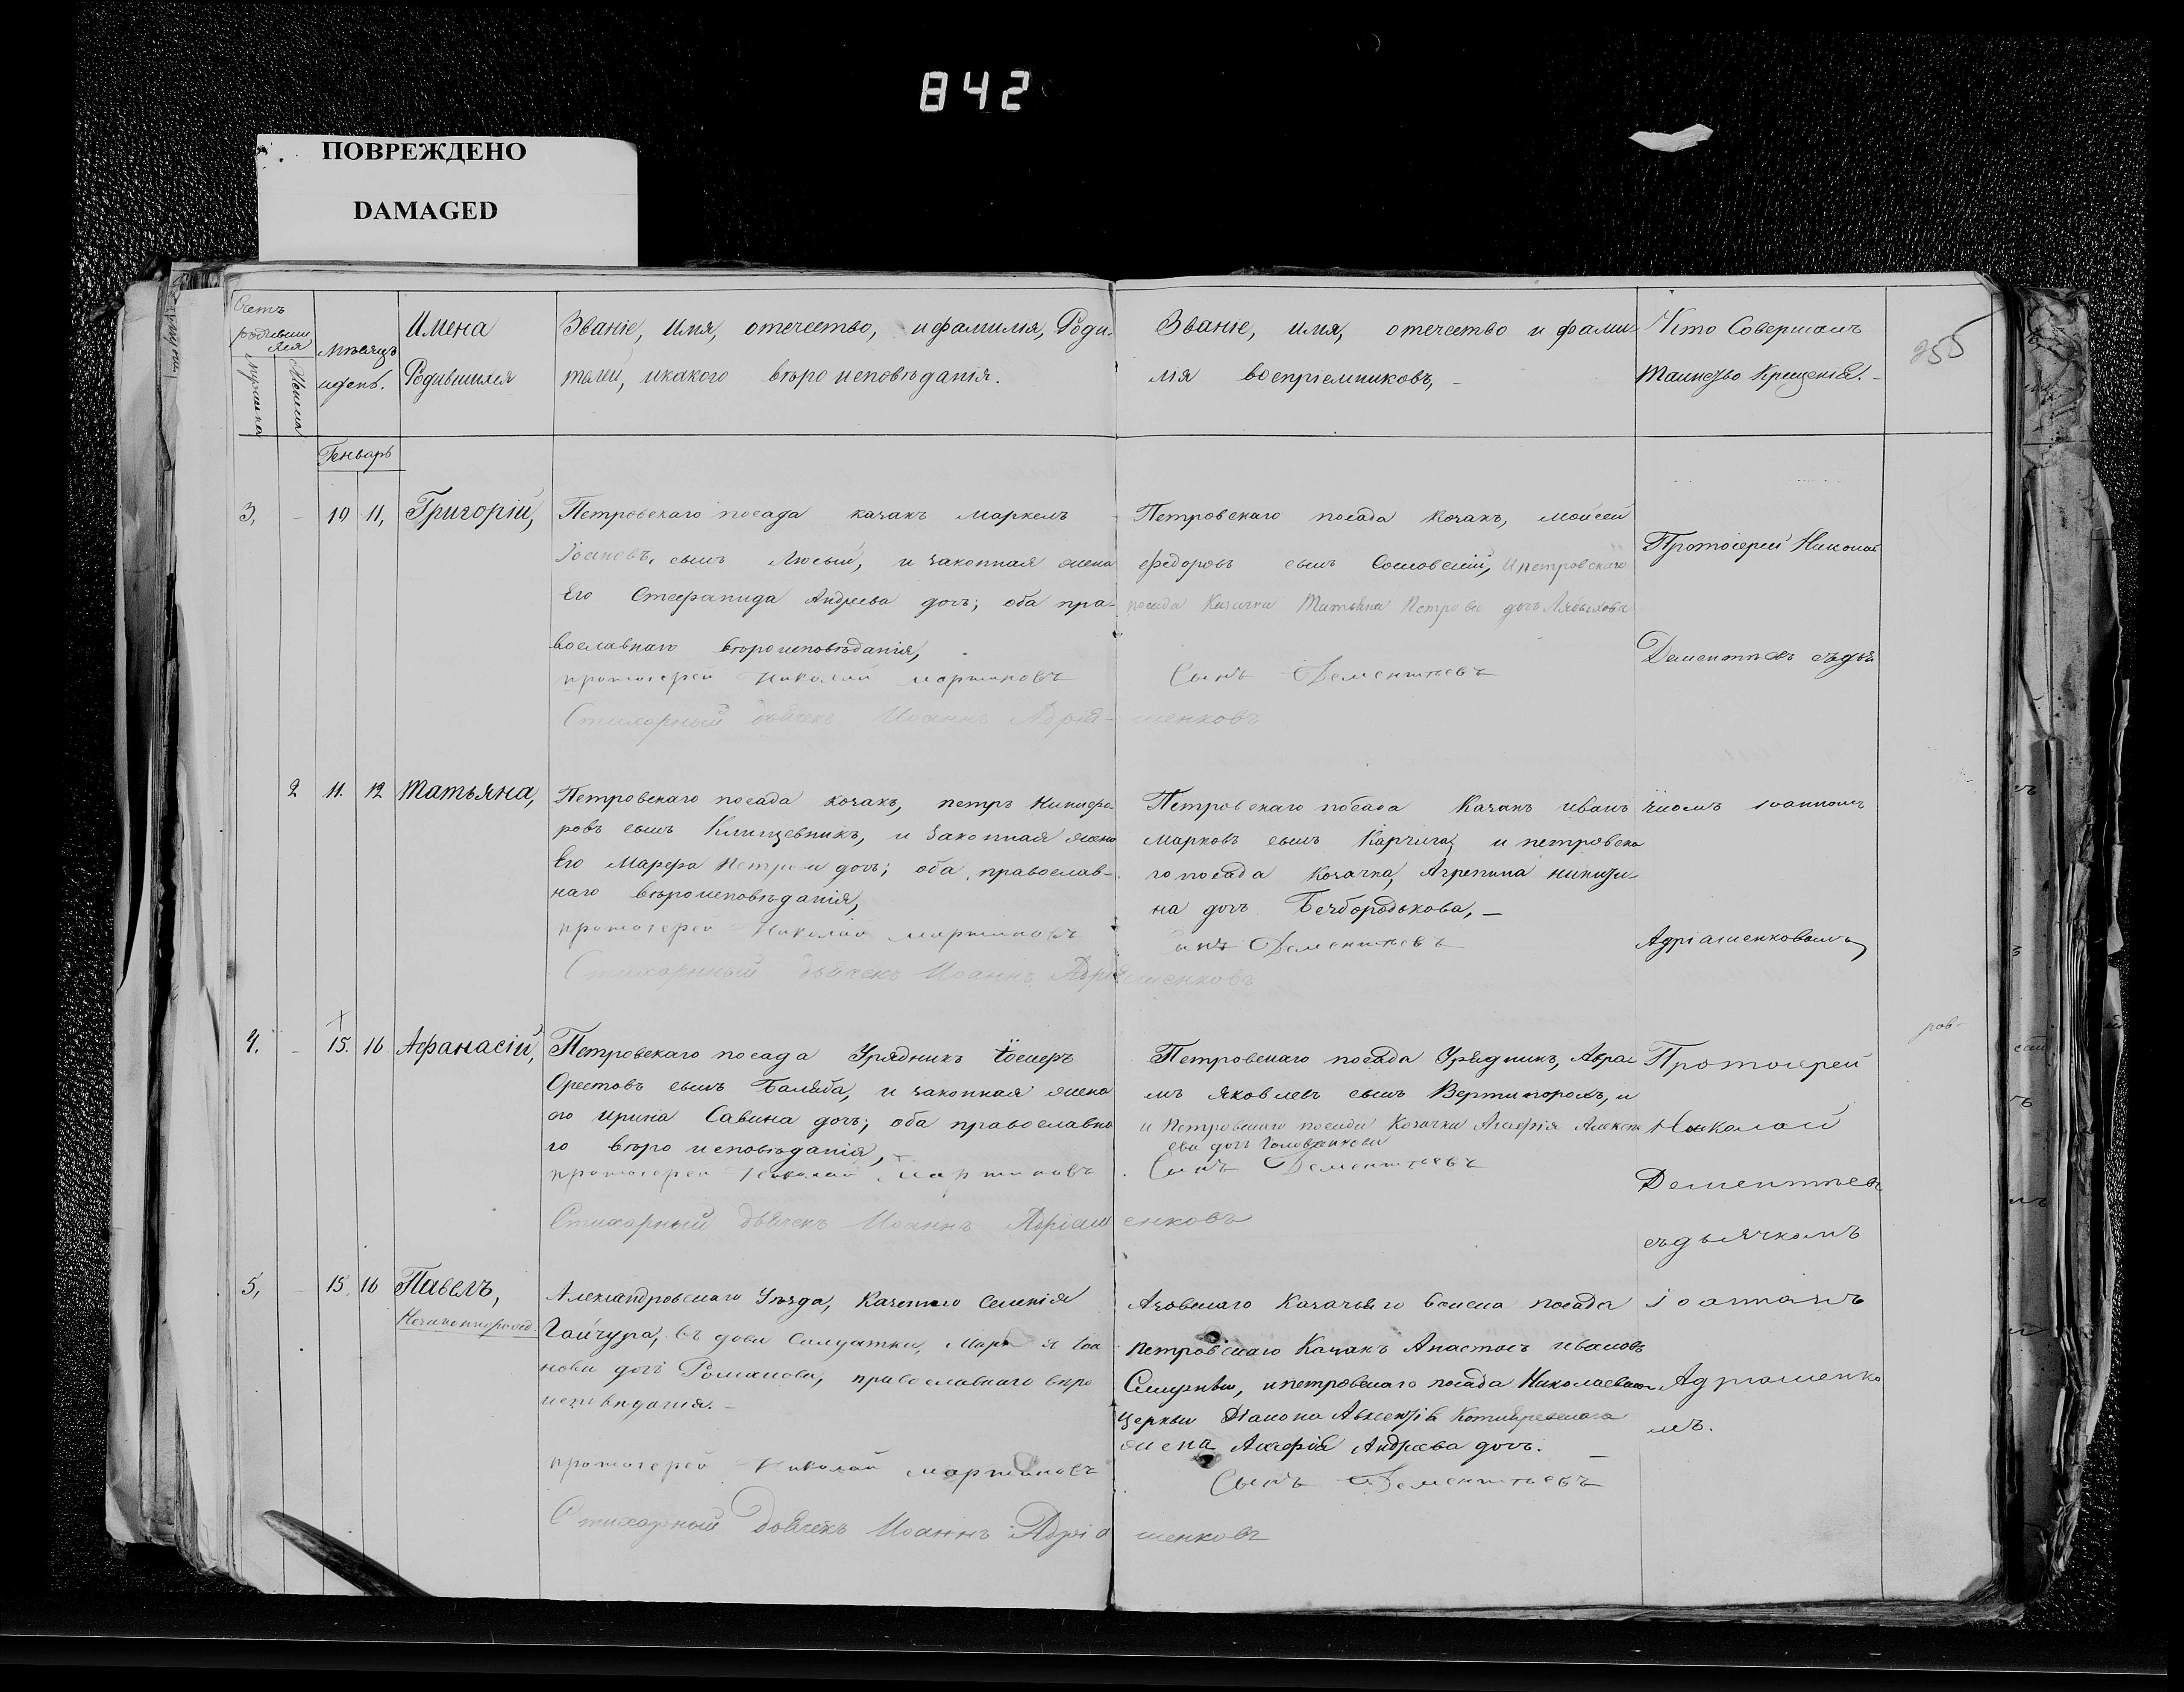 842
ПОВРЕЖДЕНО
DAMAGED
255
Счетъ
родивших
ся
мужеска
Женска
Мѣсяцъ
и день.
Имена
Родившихся
Званіе, имя, отечество, и фамилія, Роди-
телей, и какого вѣроисповѣданія.
Званіе, имя, отечество и фами-
лія воспріемниковъ, -
Кто Совершалъ
Таинство Крещенія. -
Генварь
3, - 10 11, Григорій,
Петровскаго посада казакъ Маркелъ
сынъ и законная жена
Его Стефанида Андреева дочь; оба пра-
вославнаго вѣроисповѣданія,
протоіерей Николай Мартиновъ
Стихарный дьячекъ Иоаннъ Адріа-
Петровскаго посада Козакъ, Мойсей
Федоровъ сынъ и петровскаго
посада Казачка Татьяна Петрова дочь
Сынъ Дементьевъ
шенковъ
Протоіерей Николай
Дементьевъ съ дья
2 11. 12 Татьяна,
Петровскаго посада козакъ, петръ Никифо-
ровъ сынъ и законная жена
Его Марфа Петрова дочь; оба православ-
наго вѣроисповѣданія,
протоіерей Николай Мартиновъ
Стихарный дьячекъ Иоаннъ Адріа
Петровскаго посада Казакъ иванъ
Марковъ сынъ и петровска
го посада Козачка, Агрепина никити-
на дочь Безбородькова, -
Дементьевъ
шенковъ
чкомъ іоанномъ
Адріашенковымъ,
4. - 15. 16 Афанасій,
Петровскаго посада Урядникъ
Орестовъ сынъ Баляба, и законная жена
его ирина Савина дочь; оба православна
го вѣро исповѣданія,
протоіерей Николай Мартиновъ
Стихарный дьячекъ Иоаннъ Адріаш
Петровскаго посада Урядникъ, Авра
мъ Яковлевъ сынъ и
и Петровскаго посада Козачка Агафія Алексѣ
ева дочь
Сынъ Дементьевъ
енковъ
Протоіерей
Николай
Дементьевъ
съ дьячкомъ
5, 15, 16 Павелъ,
Незаконнорожд.
Александровскаго Уѣзда, Казеннаго Селенія
Гайчура, вдова Салдатка, Марія Іоа
нова дочь Романова, православнаго вѣро
исповѣданія. -
протоіерей Николай Мартиновъ
Стихарный дьячекъ Иоаннъ Адріа
Азовскаго Казачьяго войска посада
петровскаго Казакъ Анастасъ ивановъ
и петровскаго посада Николаевской
Церкви Діакона
жена Агафія Андреева дочь. -
Сынъ Дементьевъ
шенковъ
іоанномъ
Адріашенко
мъ.